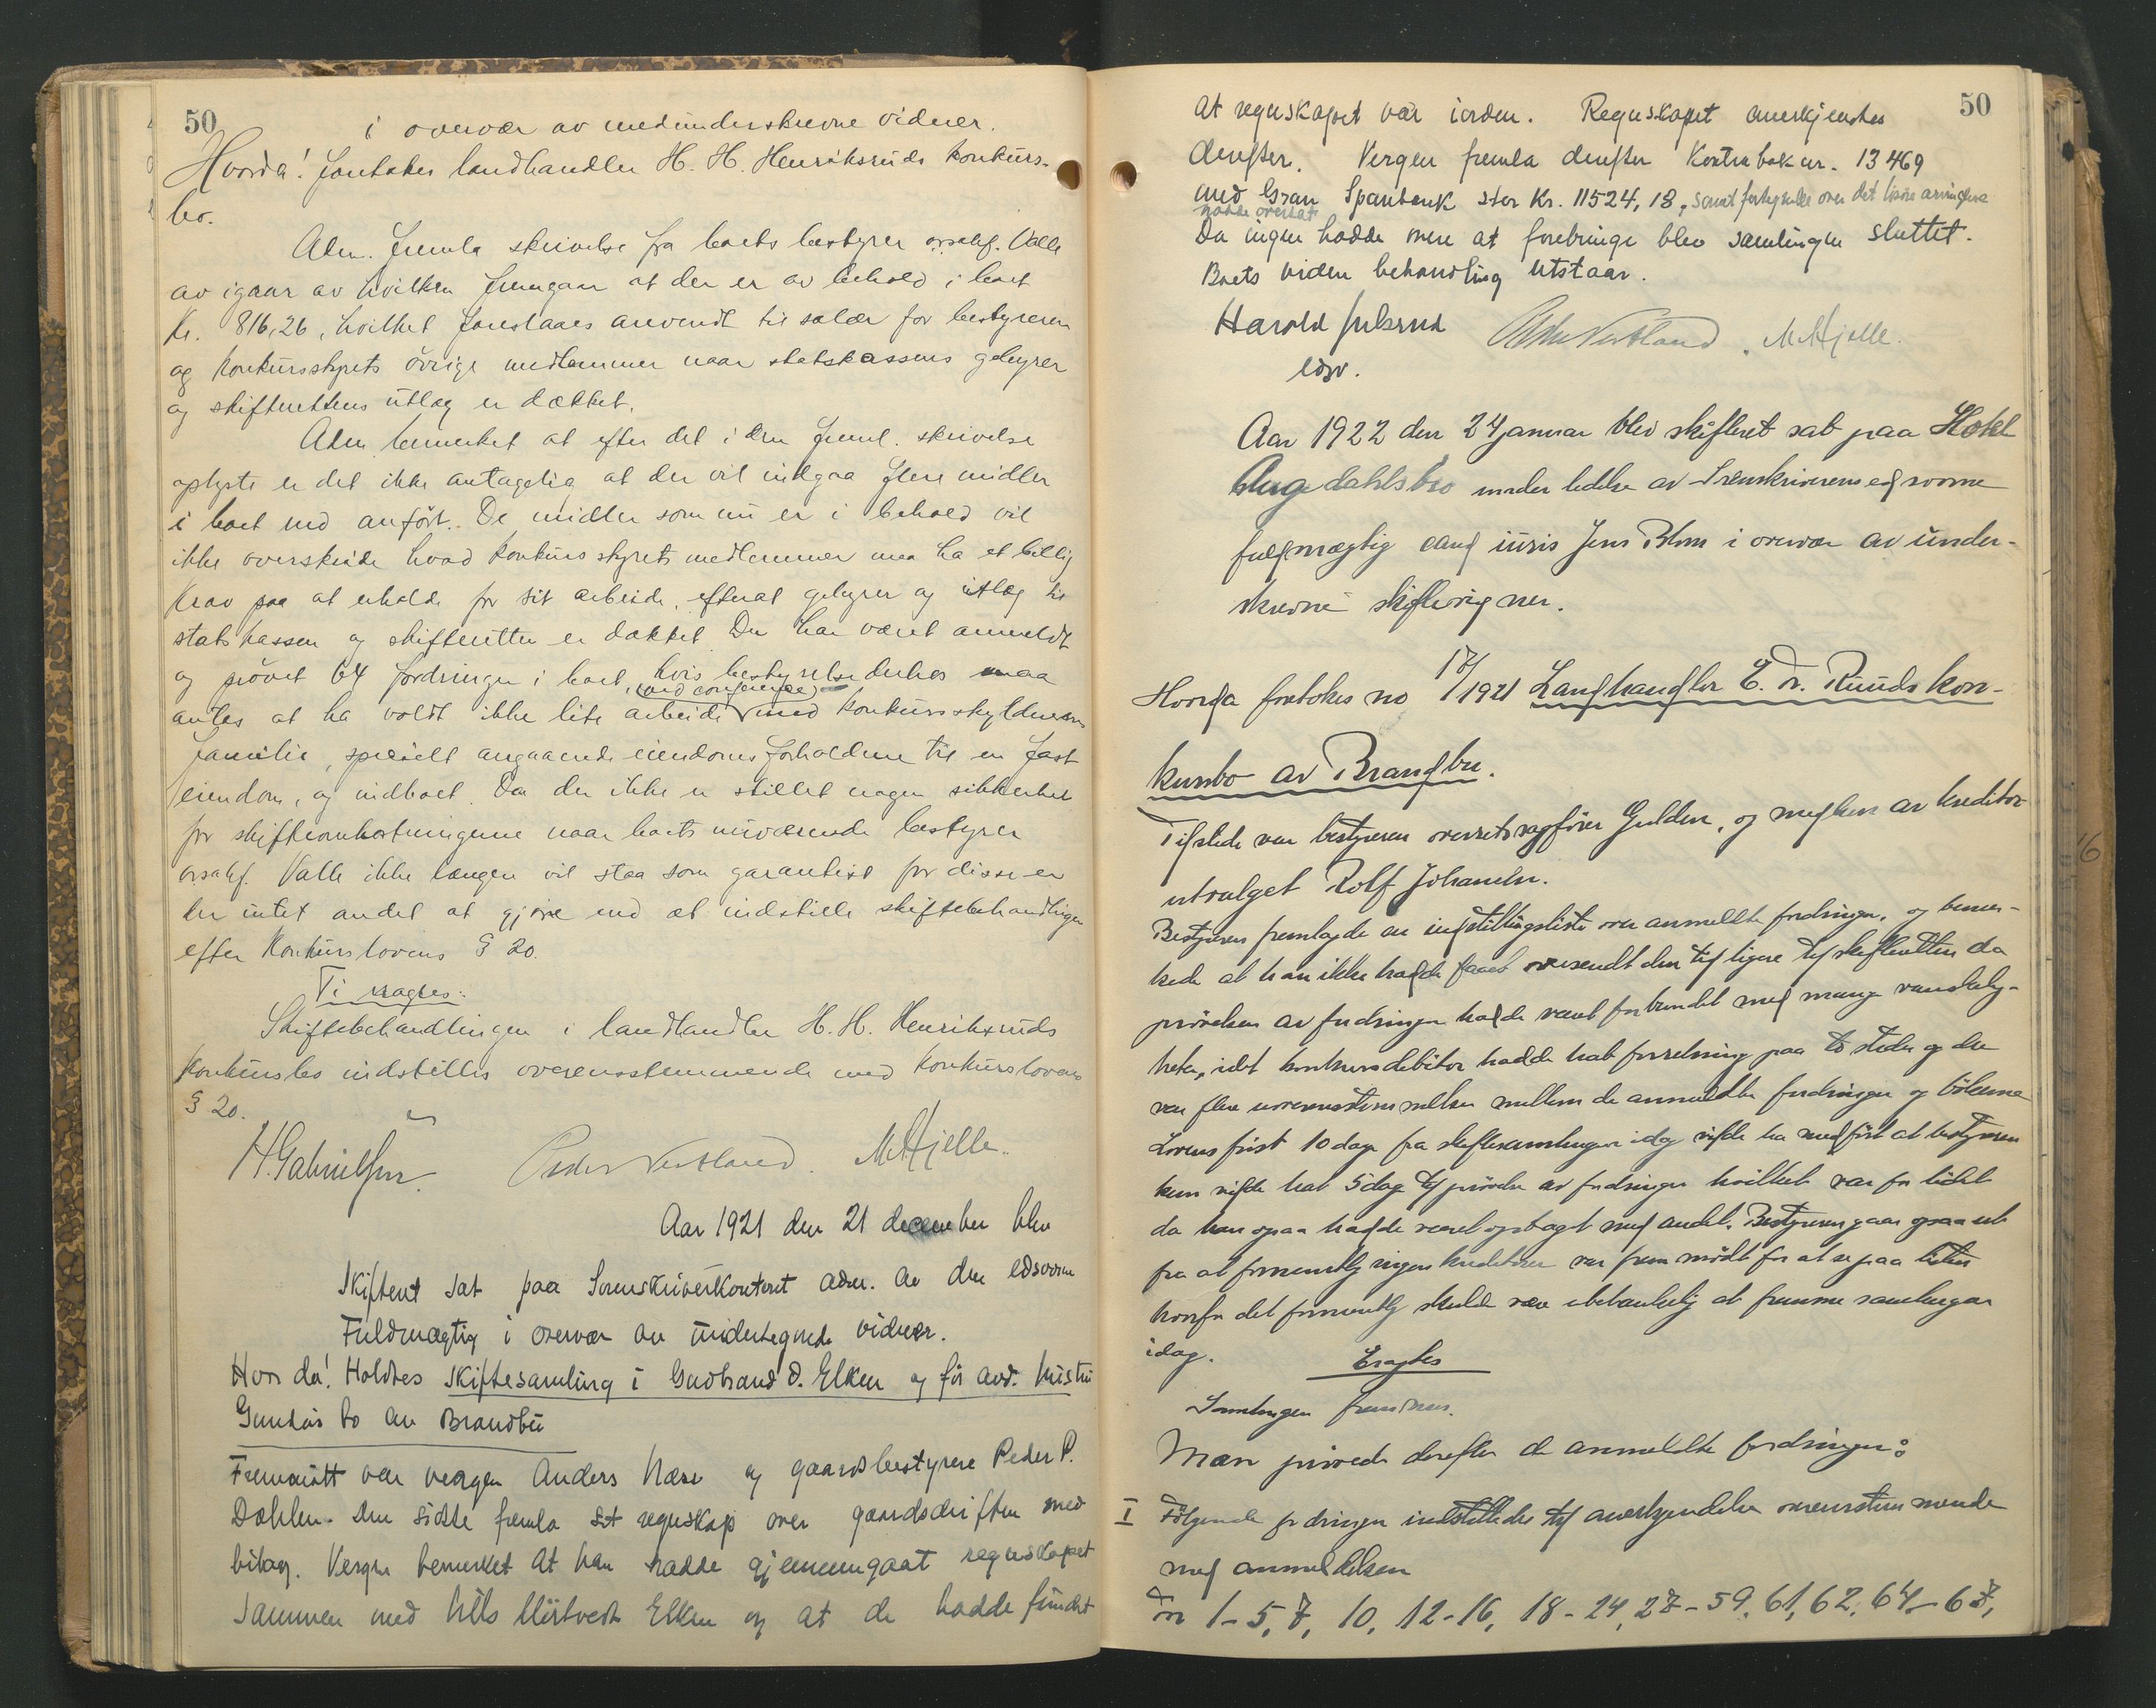 50
i overvær av medunderskrevne vidner.
Hvorda! foretokes landhandler H. H. Henriksruds konkurs-
bo.
Adm. fremla skrivelse fra boets bestyrer orsakf. Valle
av igaar av hvilken fremgaar at der er av behold i boet
Kr. 816,26, hvilket foreslaaes anvendt til salær for bestyreren
og konkursstyrets övrige medlemmer naar statskassens gebyrer
og skifterettens utlæg er dækket.
Adm. bemerket at efter det i den freml. skrivelse
oplyste er det ikke antagelig at der vil indgaa flere midler
i boet end anfört. De midler som nu er i behold vil
ikke overskride hvad konkursstyrets medlemmer maa ha et billig
krav paa at erholde for sit arbeide, efterat gebyrer og utlæg til
statskassen og skifteretten er dækket. Der har været anmeldt
og prövet 64 fordringer i boet, hvis bestyrelse derhos maa
(ved conferense)
antas at ha voldt ikke lite arbeide med konkursskyldnerens
familie, specielt angaaende eiendomsforholdene til en fast
eiendom, og indboet. Da der ikke er stillet nogen sikkerhet
for skifteomkostningerne naar boets nuværende bestyrer
orsakf. Valle ikke længer vil staa som garantist for disse er
der intet andet at gjöre end at indstille skiftebehandlingen
efter Konkurslovens § 20.
Ti eragtes:
Skiftebehandlingen i landhandler H. H. Henriksruds
konkursbo indstilles overensstemmende med konkurslovens
§ 20.
H. Gabrielsen. Peder Vestland. M Hjelle.
Aar 1921 den 21 december blev
Skifteret sat paa Sorenskriverkontoret adm. av den edsvorne
Fuldmægtig i overvær av undertegnede vidner.
Hvor da! Holdtes Skiftesamling i Gudbrand O. Elken og før avd. hustru
Gundas bo av Brandbu
Fremmött var vergen Anders Næss og gaardsbestyrer Peder P.
Dæhlen. Den sidste fremla sit regnskap over gaardsdriften med
bilag. Vergen bemerket at han hadde gjennemgaat regnskapet
sammen med Nils Elken og at de hadde fundet
50
at regnskapet var iorden. Regnskapet anerkjendtes
derefter. Vergen fremla derefter Kontrabok nr. 13469
med Gran Sparebank stor Kr. 11524,18, samt fortegnelse over det lösöre arvingerne
hadde overtat.
Da ingen hadde mere at forebringe blev samlingen sluttet.
Boets videre behandling utstaar.
Harald Julsrud Peder Vestland. M Hjelle.
edsv.
Aar 1922 den 24 januar blev skifteret sat paa Hotel
Augedahlsbro under ledelse av Sorenskriverens edsvorne
fuldmægtig cand juris Jens Blom i overvær av under-
skrevne skiftevidner.
Hvorda foretokes no 17/1921 Landhandler E. N. Ruuds kon-
kursbo av Brandbu.
Tilstede var bestyreren overretssagförer Gulden, og medlem av kreditor-
utvalget Rolf Johansen.
Bestyreren fremlagde en indstillingsliste over anmeldte fordringer, og bemer-
kede at han ikke hadde faaet oversendt den tidligere til skifteretten da
prövelsen av fordringer hadde været forbundet med mange vanskelig-
heter, idet konkursdebitor hadde hat forretning paa to steder og der
var flere uoverensstemmelser mellem de anmeldte fordringer og bökerne
Lovens frist 10 dage fra skiftesamlingen idag vilde ha medfört at bestyreren
kun vilde hat 5 dage til prövelse av fordringer hvilket var for lidet
da han ogsaa hadde været optagt med andet. Bestyreren gaar ogsaa ut
fra at formentlig ingen kreditorer var frem mödt for at se paa listen
hvorfor det formentlig skulde være ubetænkelig at fremme samlingen
idag.
Eragtes
Samlingen fremmes.
Man prövede derefter de anmeldte fordringer:
I Følgende fordringer indstilledes til anerkjendelse overensstemmende
med anmeldelsen
Nr 1-5, 7, 10, 12-16, 18-24, 27-59, 61, 62, 64-67,
16